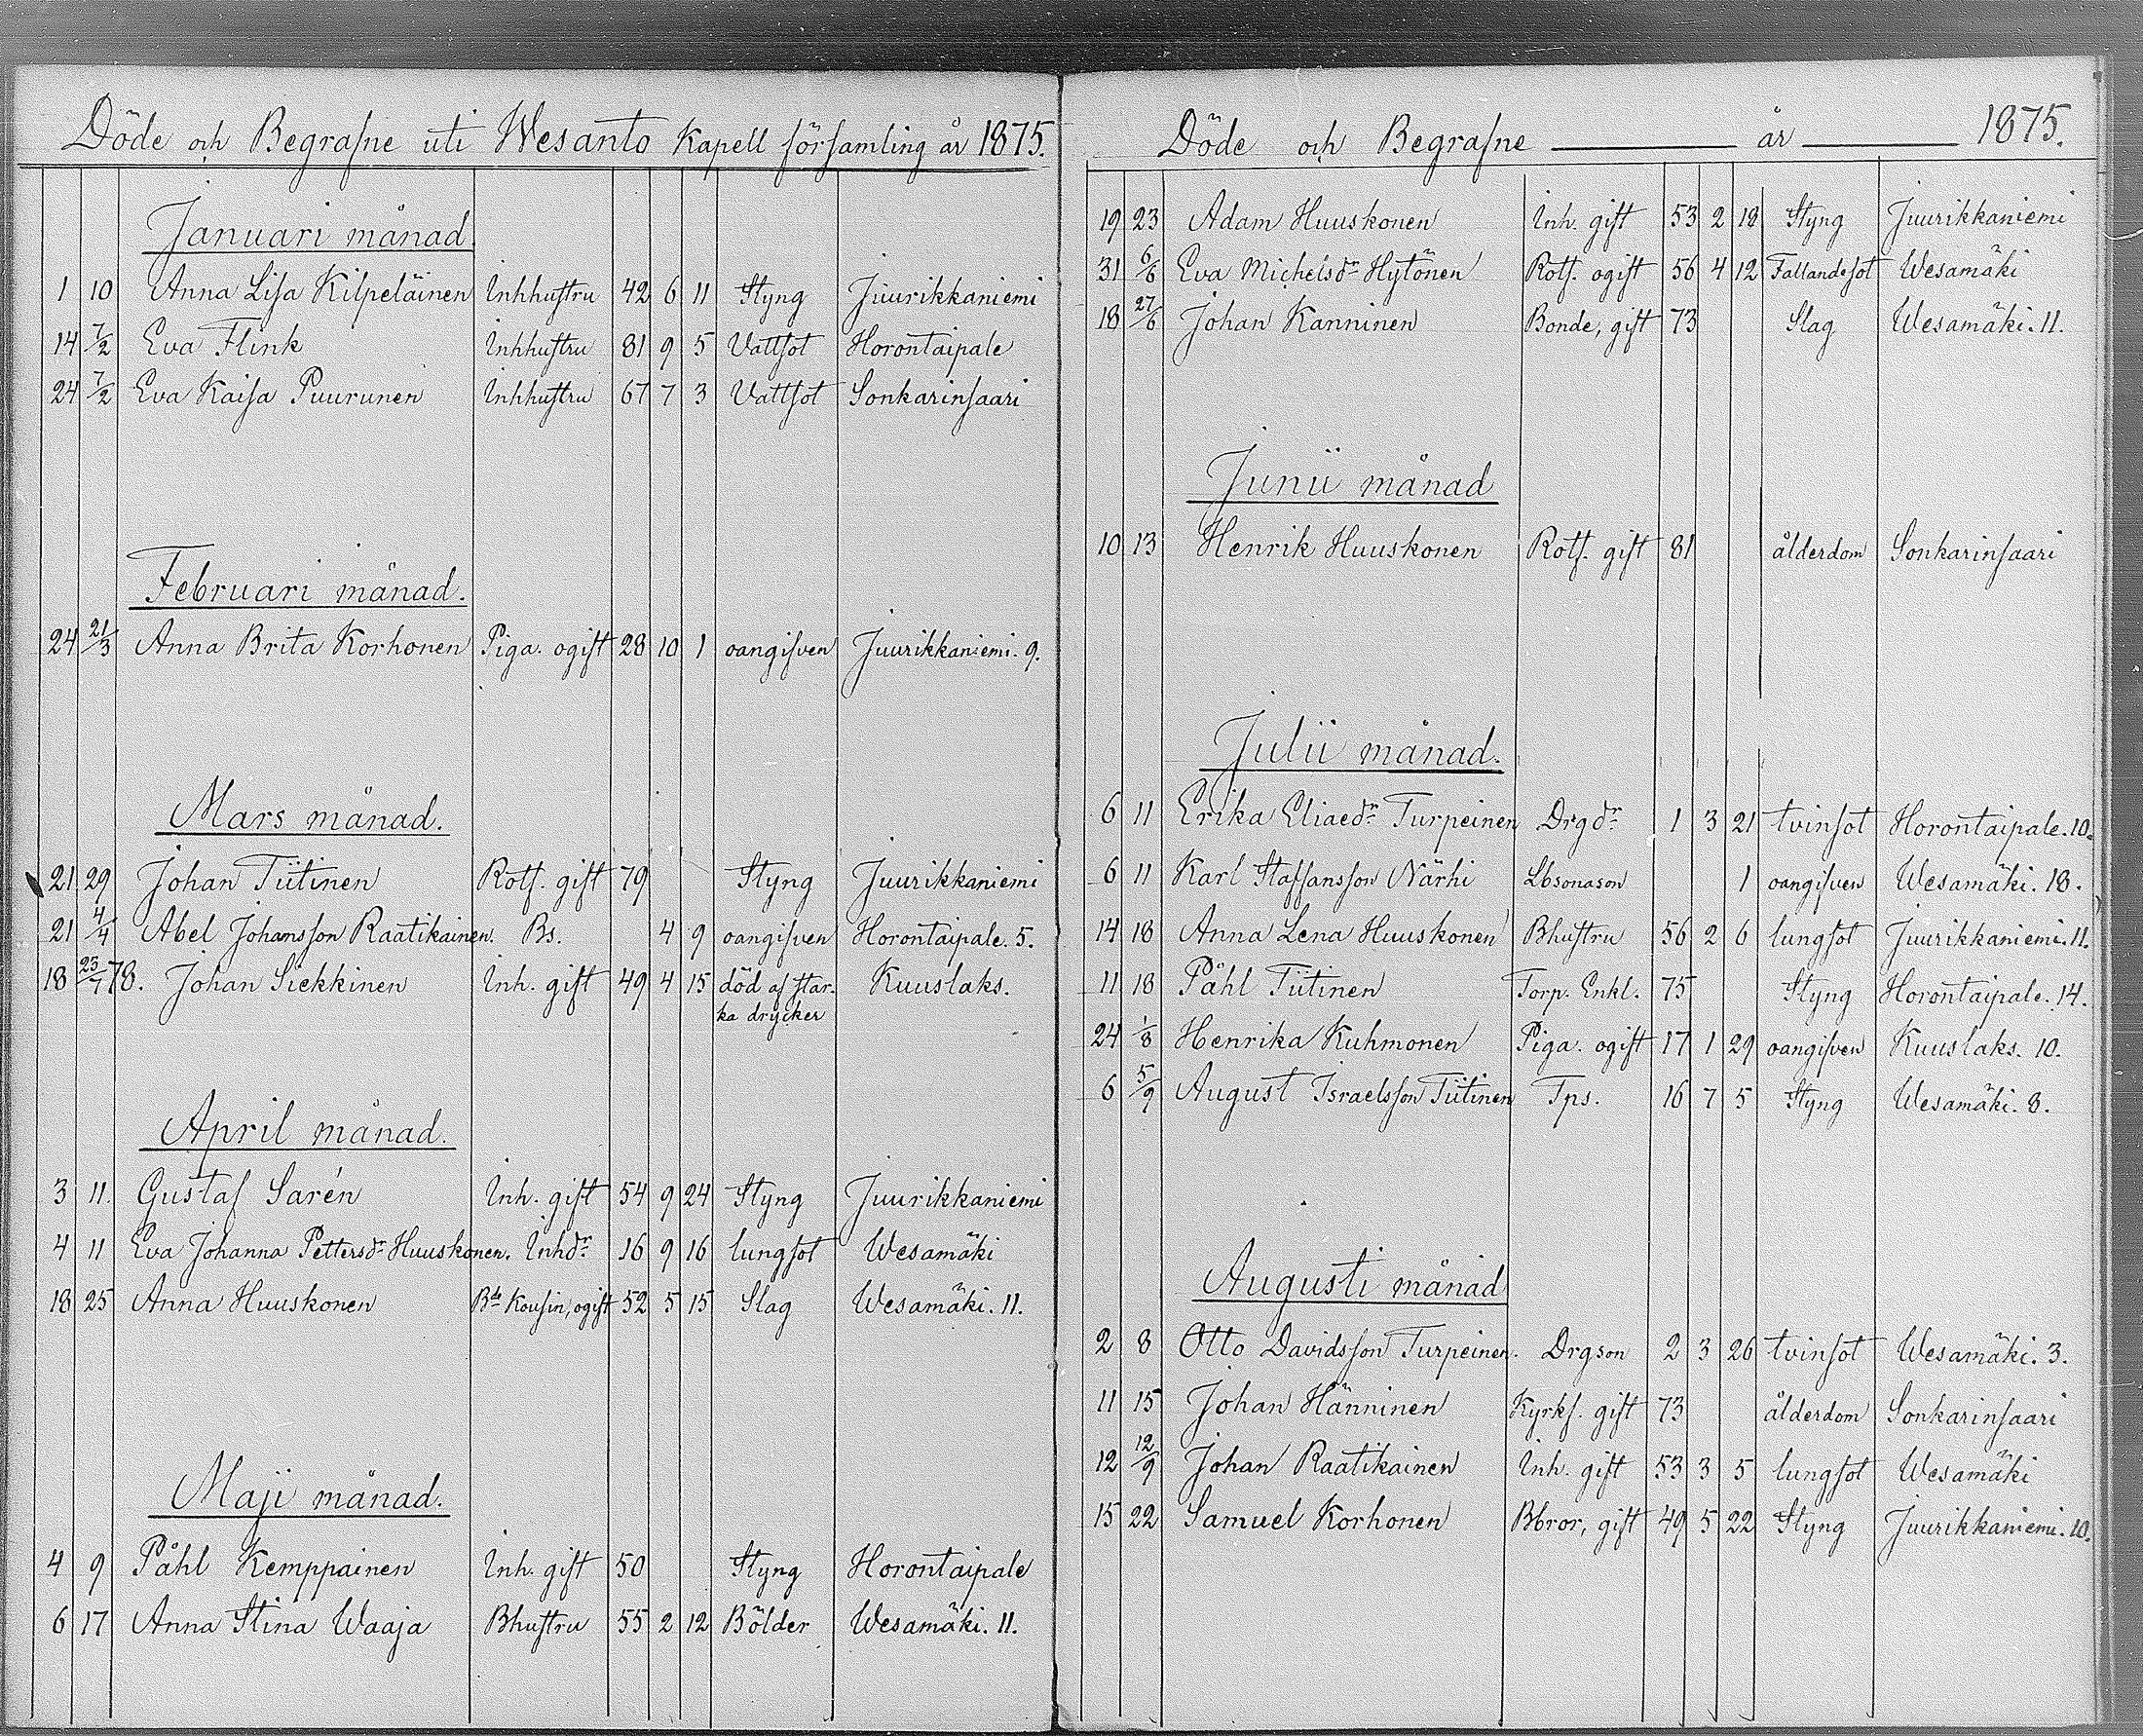 Döde och Begrafne uti Wesanto Kapell församling år 1875.
Januari månad
1 10 Anna Lisa Kilpeläinen Inhhustru 42 6 11 Styng Juurikkaniemi
14 7/2 Eva Flink Inhhustru 81 9 5 Vattsot Horontaipale
24 7/2 Eva Kaisa Puurunen Inhhustru 67 7 3 Vattsot Sonkarinsaari
Februari månad.
24 21/3 Anna Brita Korhonen Piga. ogift 28 10 1 oangifven Juurikkaniemi. 9.
Mars månad.
21 29 Johan Tiitinen Rotf. gift 79 Styng Juurikkaniemi
21 4/4 Abel Johansson Raatikainen. Bs. 4 9 oangifven Horontaipale. 5.
18 23/7 78. Johan Siekkinen Inh. gift 49 4 15 död af star- Kuuslaks.
ka drycker
April månad.
3 11. Gustaf Sarén Inh. gift 54 9 24 Styng Juurikkaniemi
4 11 Eva Johanna Pettersdr Huuskonen. Inhdr 16 9 16 lungsot Wesamäki
18 25 Anna Huuskonen Bde Kousin, ogift 52 5 15 Slag Wesamäki. 11.
Maji månad.
4 9 Påhl Kemppainen Inh. gift 50 Styng Horontaipale
6 17 Anna Stina Waaja Bhustru 55 2 12 Bölder Wesamäki. 11.
Döde och Begrafne år 1875.
19 23 Adam Huuskonen Inh. gift 53 2 18 Styng Juurikkaniemi
31 6/6 Eva Michelsdr Hytönen Rotf. ogift 56 4 12 Fallandesot Wesamäki
18 27/6 Johan Kanninen Bonde, gift 73 Slag Wesamäki. 11.
Junii månad
10 13 Henrik Huuskonen Rotf. gift 81 ålderdom Sonkarinsaari
Julii månad.
6 11 Erika Eliaedr Turpeinen Drgdr 1 3 21 tvinsot Horontaipale. 10.
6 11 Karl Staffansson Närhi Lbsonason 1 oangifven Wesamäki. 18.
14 18 Anna Lena Huuskonen Bhustru 56 2 6 lungsot Juurikkaniemi. 11.
11 18 Påhl Tiitinen Torp. Enkl. 75 Styng Horontaipale. 14.
24 1/8 Henrika Kuhmonen Piga. ogift 17 1 29 oangifven Kuuslaks. 10.
6 5/9 August Israelsson Tiitinen Tps. 16 7 5 Styng Wesamäki. 8.
Augusti månad
2 8 Otto Davidsson Turpeinen. Drgson 2 3 26 tvinsot Wesamäki. 3.
11 15 Johan Hänninen Kyrkf. gift 73 ålderdom Sonkarinsaari
12 12/9 Johan Raatikainen Inh. gift 53 3 5 lungsot Wesamäki
15 22 Samuel Korhonen Bbror, gift 49 5 22 Styng Juurikkaniemi. 10.